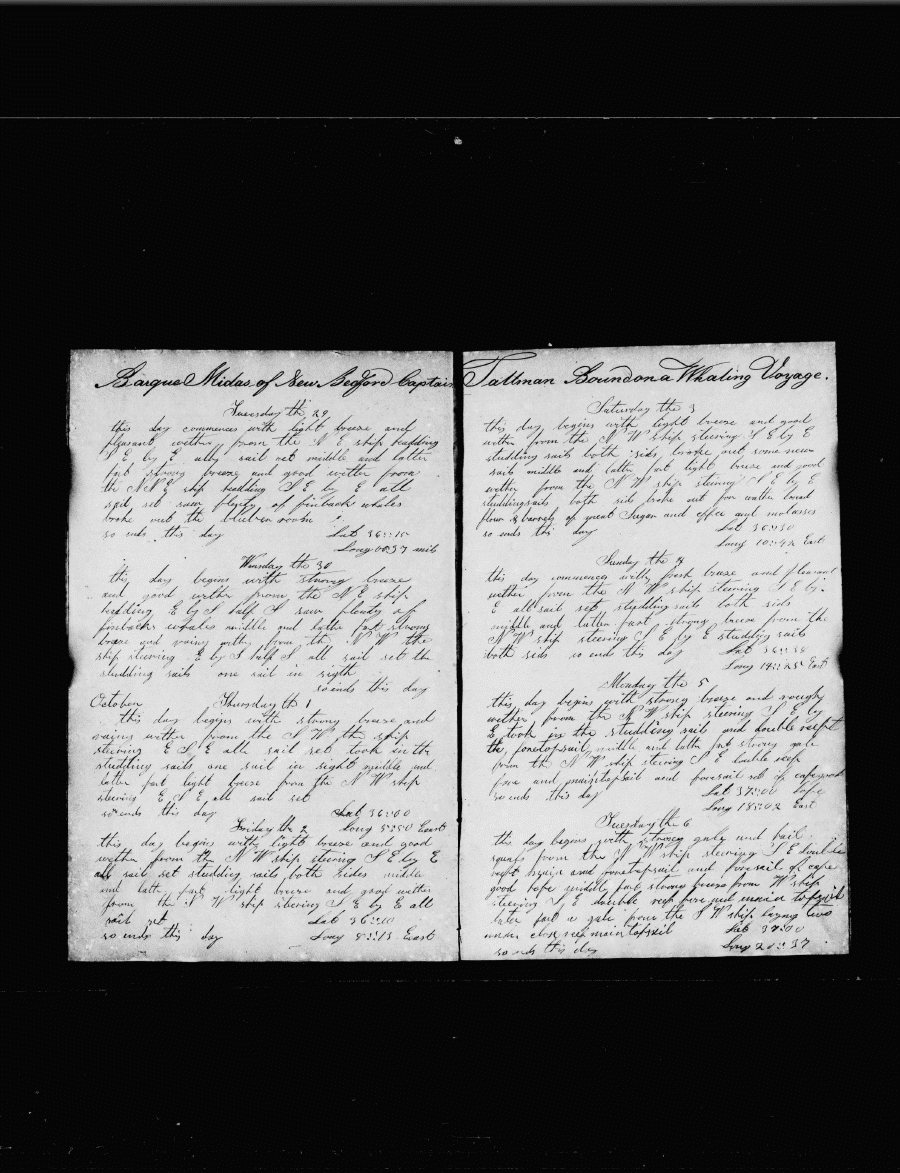 Barque Midas of New Bedford Captain
Tuesday th 29
this day commences with light breeze and
pleasant wether from the N E ship heading
S E by E all sail set middle and latter
part strong breeze and good wether from
the NNE ship heading S E by E all
sail set saw plenty of finback whales
broke out the room
so ends this day Lat 36::10
Long 00::37
Wensday the 30
this day begins with strong breeze
and good wether from the N E ship
heading E by S half S saw plendy of
finbacks whales middle and latter part strong
breeze and wether from the N W the
ship steering E by S half S all sail set the
studding sails one sail in sigth
so ends this day
October Thursday th 1
this day begins with strong breeze and
rainy wether from the S W the ship
steering E S E all sail set took in the
studding sails one sail in sight middle and
latter part light breeze from the N W ship
steering E S E all sail set
so ends this day Lat 36::00
Friday the 2 Long 5::50 East
this day begins with light breeze and good
wether from the N W ship steering S E by E
all sail set studding sails both sides middle
and latter part light breeze and good wether
from the N W ship steering S E by E all
sail set Lat 36::00
so ends this day Long 8::13 East
Tallman Bound on a Whaling Voyage.
Saturday the 3
this day begins with light breeze and good
wether from the N W ship steering S E by E
studding sails both sids broke out some new
sails middle and latter part light breeze and good
wether from the N W ship steering S E by E
studdingsails both sids broke out for watter bread
flour & barrels of Sugar and and molasses
so ends this day Lat 36::30
Long 10::42 East
Sunday the 4
this day commences with fresh breeze and pleasant
wether from the N W ship steering S E by
E all sail set studding sails both sids
middle and latter part strong breeze from the
N W ship steering S E by E studding sails
both sids so ends this day Lat 36::38
Long 14::25 East
Monday the 5
this day begins with strong breeze and roughy
wether from the N W ship steering S E by
E took in the studding sails and double reept
the foretopsail middle and latter part strong gale
from the N W ship steering S E double reep
fore and maintopsail and foresail set of cape good
so ends this day Lat 37::00 hope
Long 18::02 East
Tuesday the 6
this day begins with strong gale and hail
squals from the N W ship steering S E
reept main and foretopsail and foresail of cape
good hope middle part strong breeze from W ship
steering S E double reep fore and main topsail
later part a gale from the S W ship laying two
under close reep maintopsail Lat 37::00
so ends this day Long 20::37